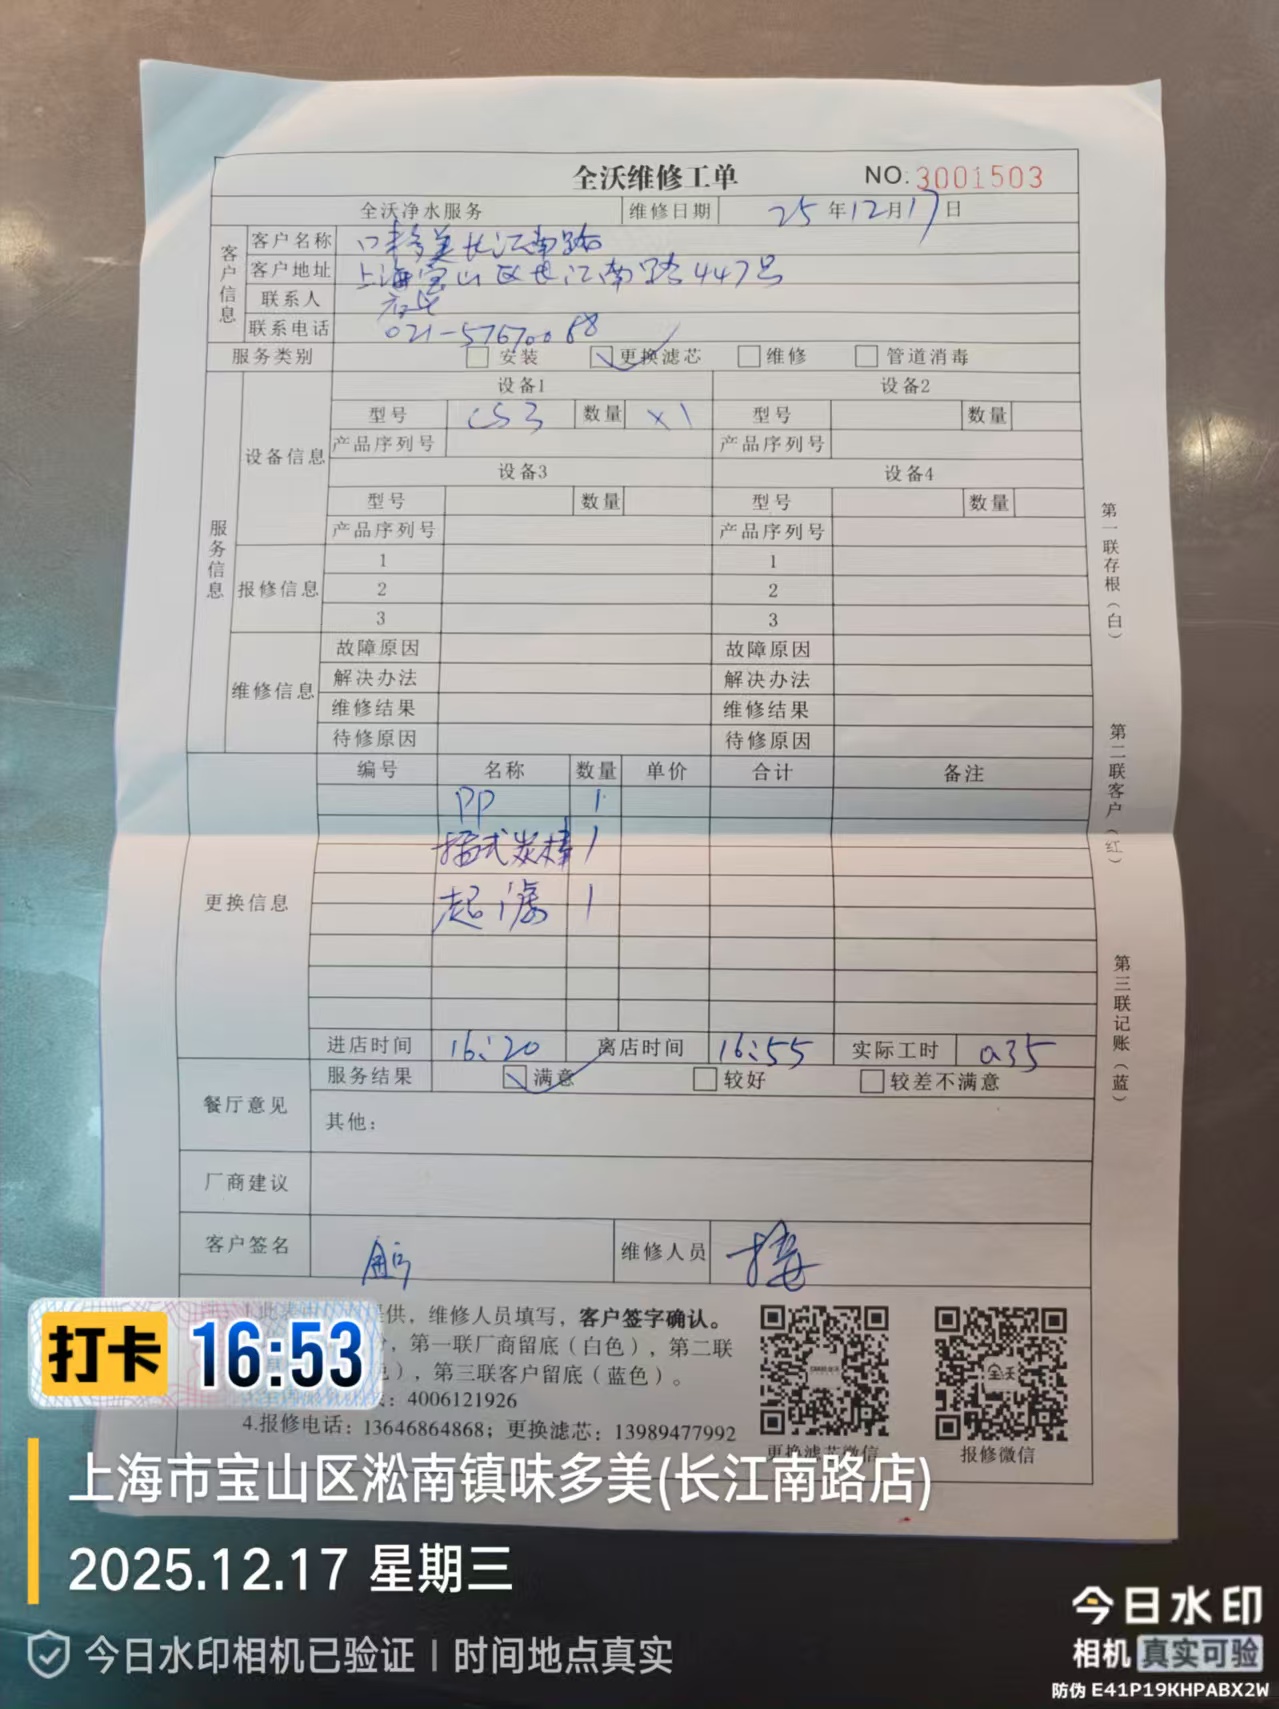 全沃维修工单 NO:3001503
全沃净水服务 维修日期 25年12月17日
客户信息
客户名称 味多美长江南路
客户地址 上海宝山区长江南路447号
联系人 店长
联系电话 021-57670068
服务类别 安装 更换滤芯 维修 管道消毒
服务信息
设备信息
设备1 设备2
型号 CS3 数量 X1 型号 数量
产品序列号 产品序列号
设备3 设备4
型号 数量 型号 数量
产品序列号 产品序列号
报修信息
1 1
2 2
3 3
维修信息
故障原因 故障原因
解决办法 解决办法
维修结果 维修结果
待修原因 待修原因
更换信息
编号 名称 数量 单价 合计 备注
PP 1
插式炭棒 1
超滤 1
进店时间 16:20 离店时间 16:55 实际工时 035
餐厅意见
服务结果 满意 较好 较差不满意
其他:
厂商建议
客户签名 维修人员
提供，维修人员填写，客户签字确认。
，第一联厂商留底（白色），第二联
），第三联客户留底（蓝色）。
：4006121926
4.报修电话：13646864868；更换滤芯：13989477992
更换滤芯微信 报修微信
第一联存根（白）
第二联客户（红）
第三联记账（蓝）
打卡 16:53
上海市宝山区淞南镇味多美(长江南路店)
2025.12.17 星期三
今日水印相机已验证 | 时间地点真实
今日水印
相机 真实可验
防伪 E41P19KHPABX2W